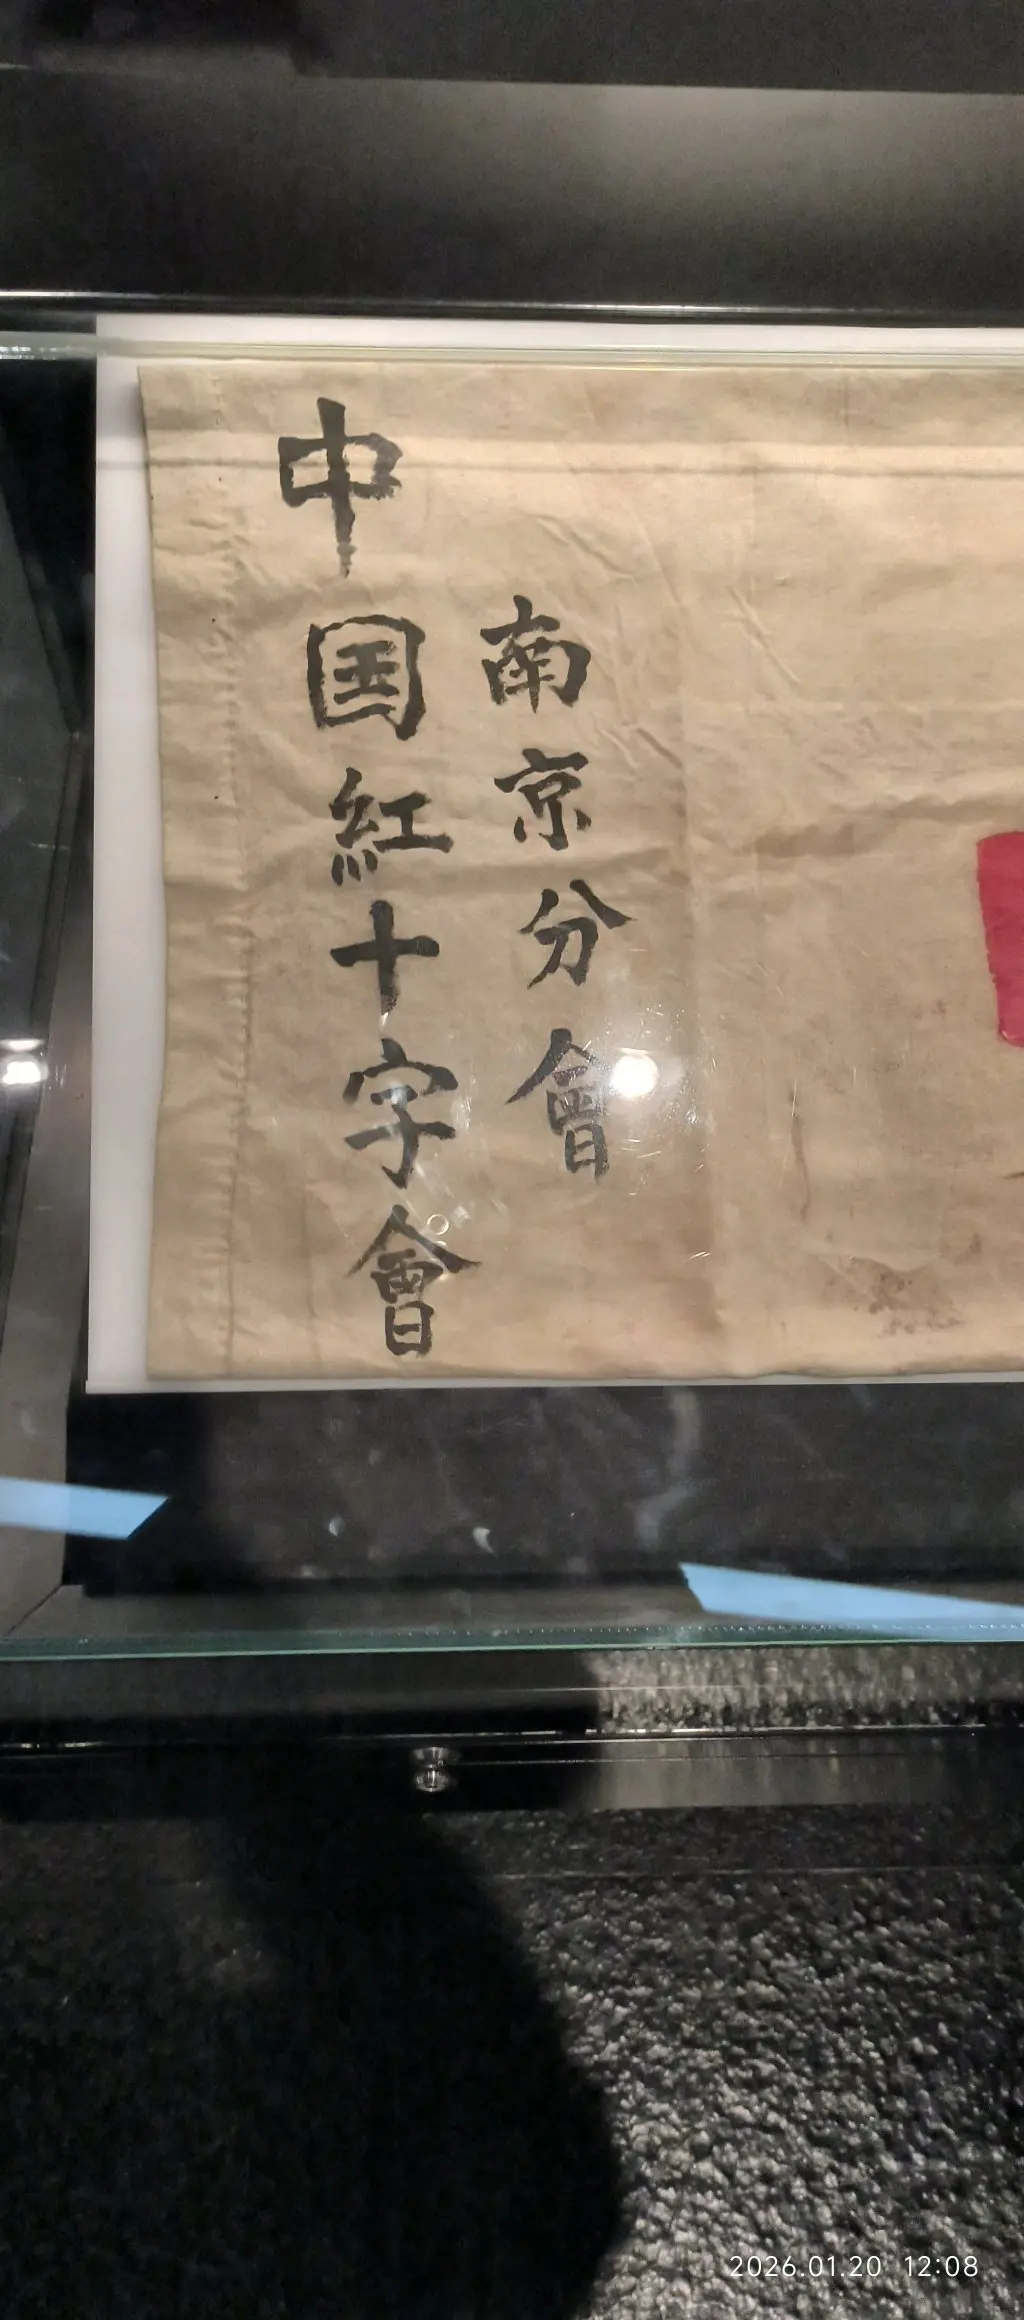 中国紅十字會
南京分會
2026.01.20 12:08